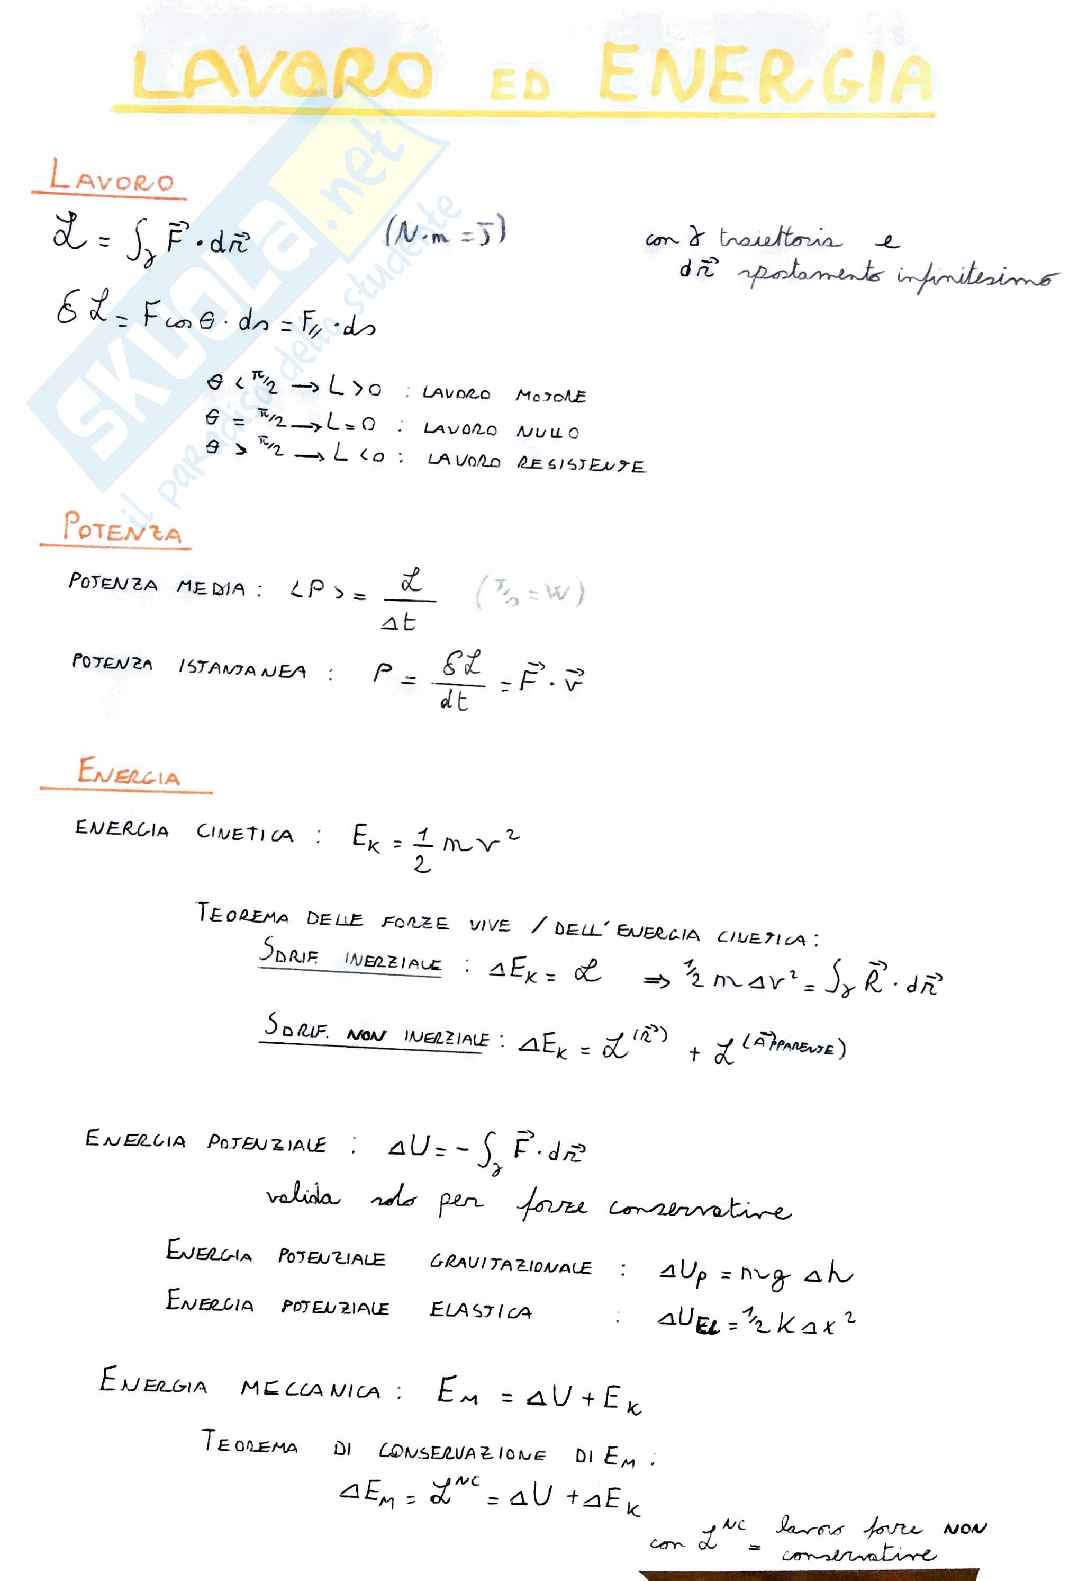 LAVORO ED ENERGIA
LAVORO
ℒ = ∫γ F⃗ · dr⃗ (N·m = J) con γ traiettoria e
dr⃗ spostamento infinitesimo
δℒ = F cos θ · ds = F∥ · ds
θ < π/2 → L > 0 : LAVORO MOTORE
θ = π/2 → L = 0 : LAVORO NULLO
θ > π/2 → L < 0 : LAVORO RESISTENTE
POTENZA
POTENZA MEDIA : <P> = ℒ/Δt (J/s = W)
POTENZA ISTANTANEA : P = δℒ/dt = F⃗ · v⃗
ENERGIA
ENERGIA CINETICA : E_K = 1/2 m v²
TEOREMA DELLE FORZE VIVE / DELL'ENERGIA CINETICA :
SDRIF. INERZIALE : ΔE_K = ℒ ⇒ 1/2 m Δv² = ∫γ R⃗ · dr⃗
SDRIF. NON INERZIALE : ΔE_K = ℒ^(R⃗) + ℒ^(A⃗PPARENTE)
ENERGIA POTENZIALE : ΔU = - ∫γ F⃗ · dr⃗
valida solo per forze conservative
ENERGIA POTENZIALE GRAVITAZIONALE : ΔU_P = mg Δh
ENERGIA POTENZIALE ELASTICA : ΔU_EL = 1/2 K Δx²
ENERGIA MECCANICA : E_M = ΔU + E_K
TEOREMA DI CONSERVAZIONE DI E_M :
ΔE_M = ℒ^NC = ΔU + ΔE_K
con ℒ^NC = lavoro forze NON
conservative
SKUOLA.net
il paradiso dello studente